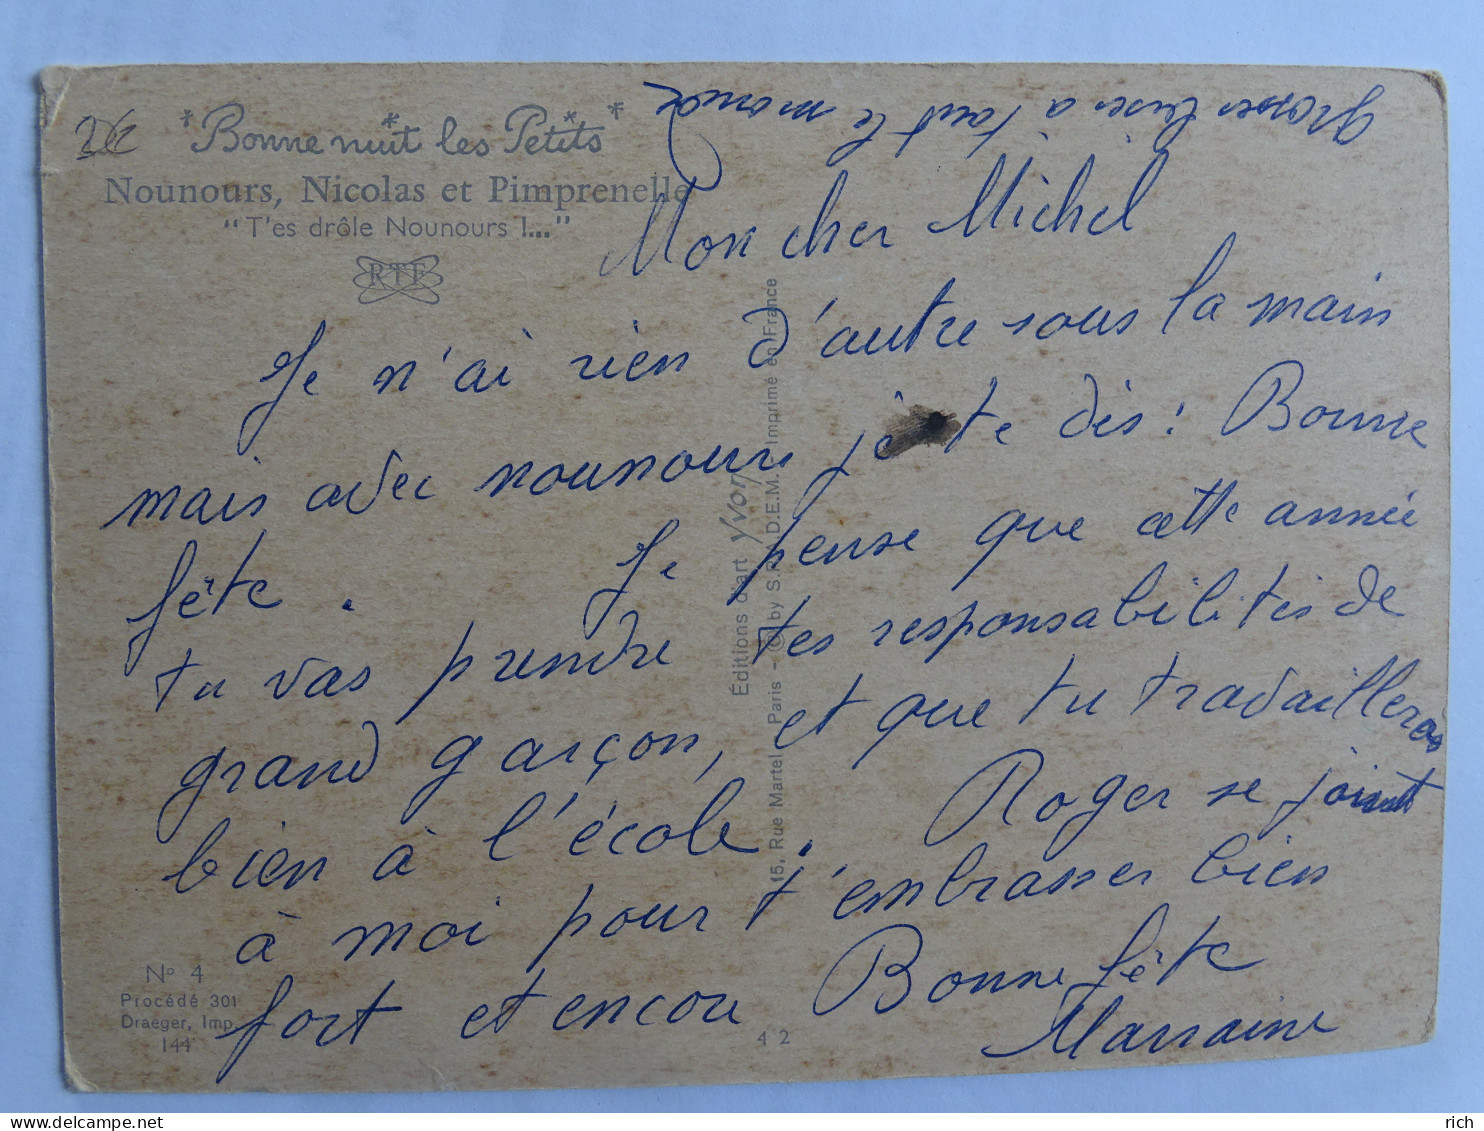 2€
Bonne nuit les Petits
Nounours, Nicolas et Pimprenelle
"T'es drôle Nounours !..."
RTF
Grosses bises a tout le monde
Mon cher Michel
Je n'ai rien d'autre sous la main
mais avec nounours je te dis : Bonne
fête. Je pense que cette année
tu vas prendre tes responsabilités de
grand garçon, et que tu travailleras
bien à l'école. Roger se joint
à moi pour t'embrasser bien
fort et encore Bonne fête
Marraine
Éditions d'art Yvon
15, Rue Martel Paris - © by S.P.A.D.E.M. - Imprimé en France
N° 4
Procédé 301
Draeger, Imp.
144
42
rich